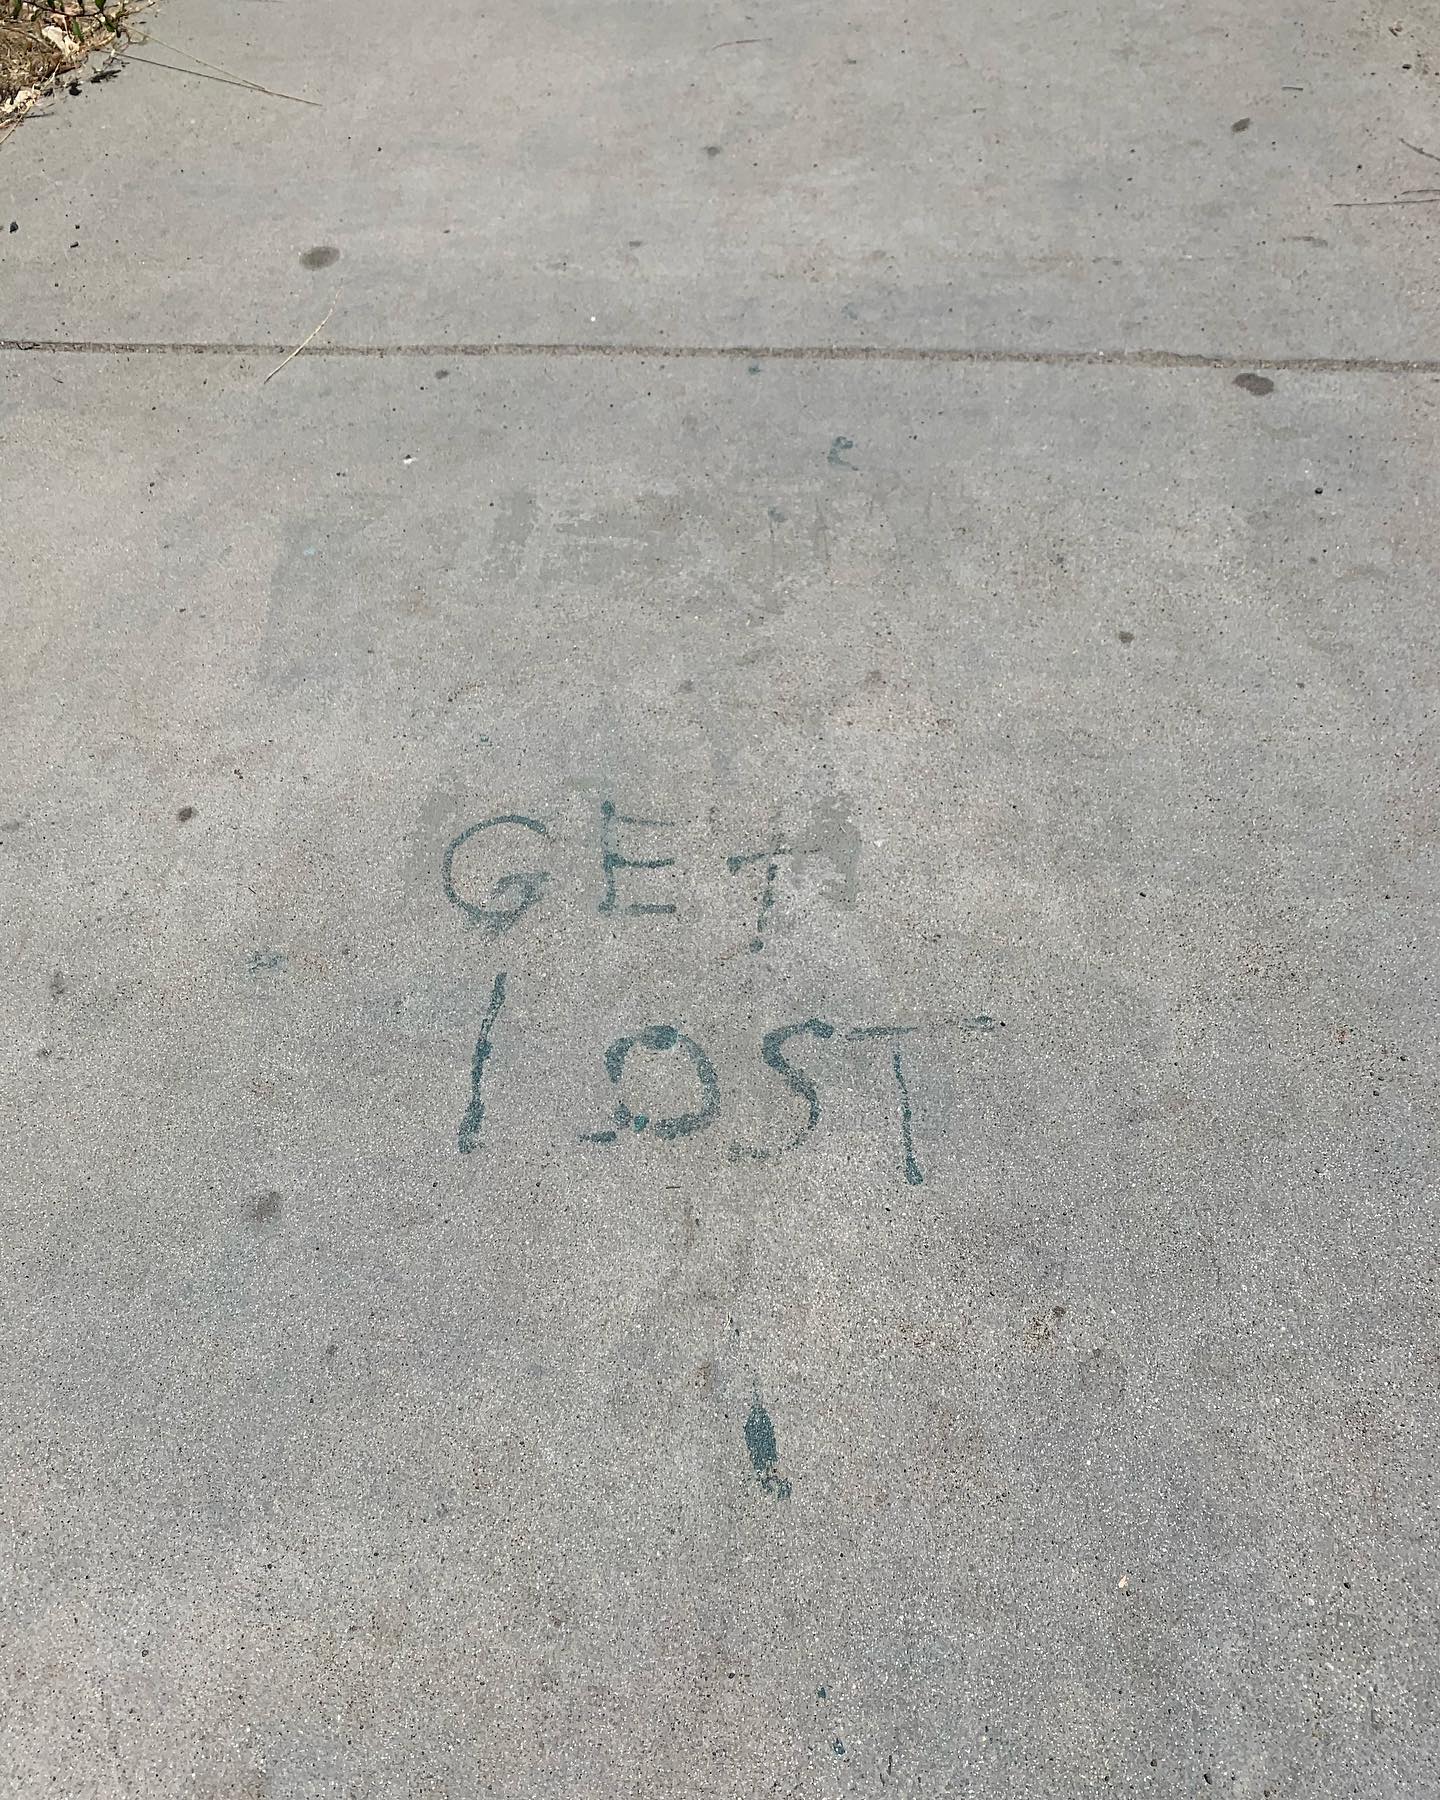 GET
LOST